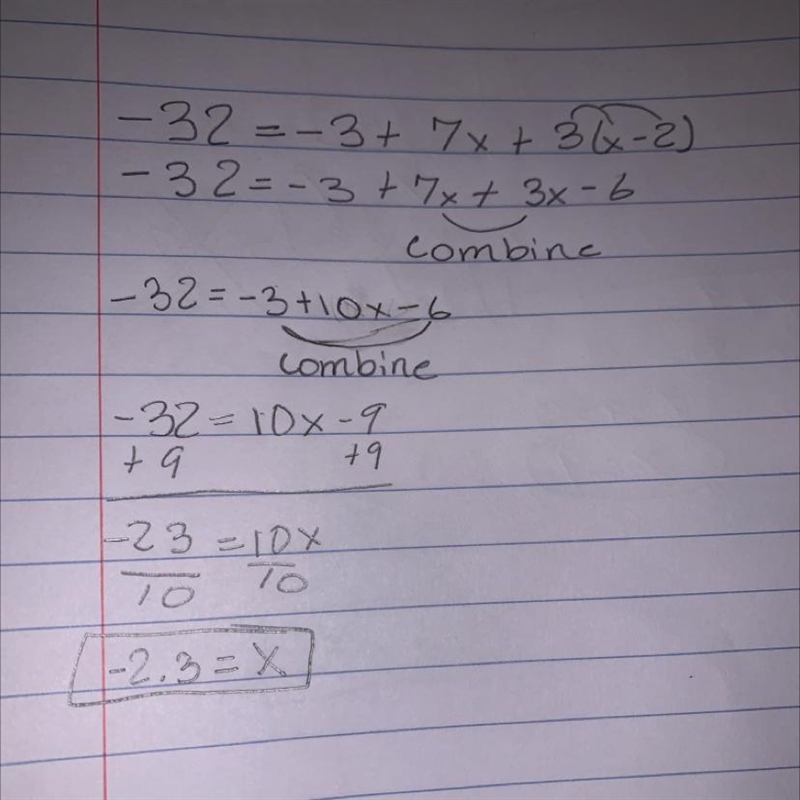 -32 = -3 + 7x + 3(x-2)
-32 = -3 + 7x + 3x - 6
combine
-32 = -3 + 10x - 6
combine
-32 = 10x - 9
+9 +9
-23 = 10x
10 10
-2.3 = x